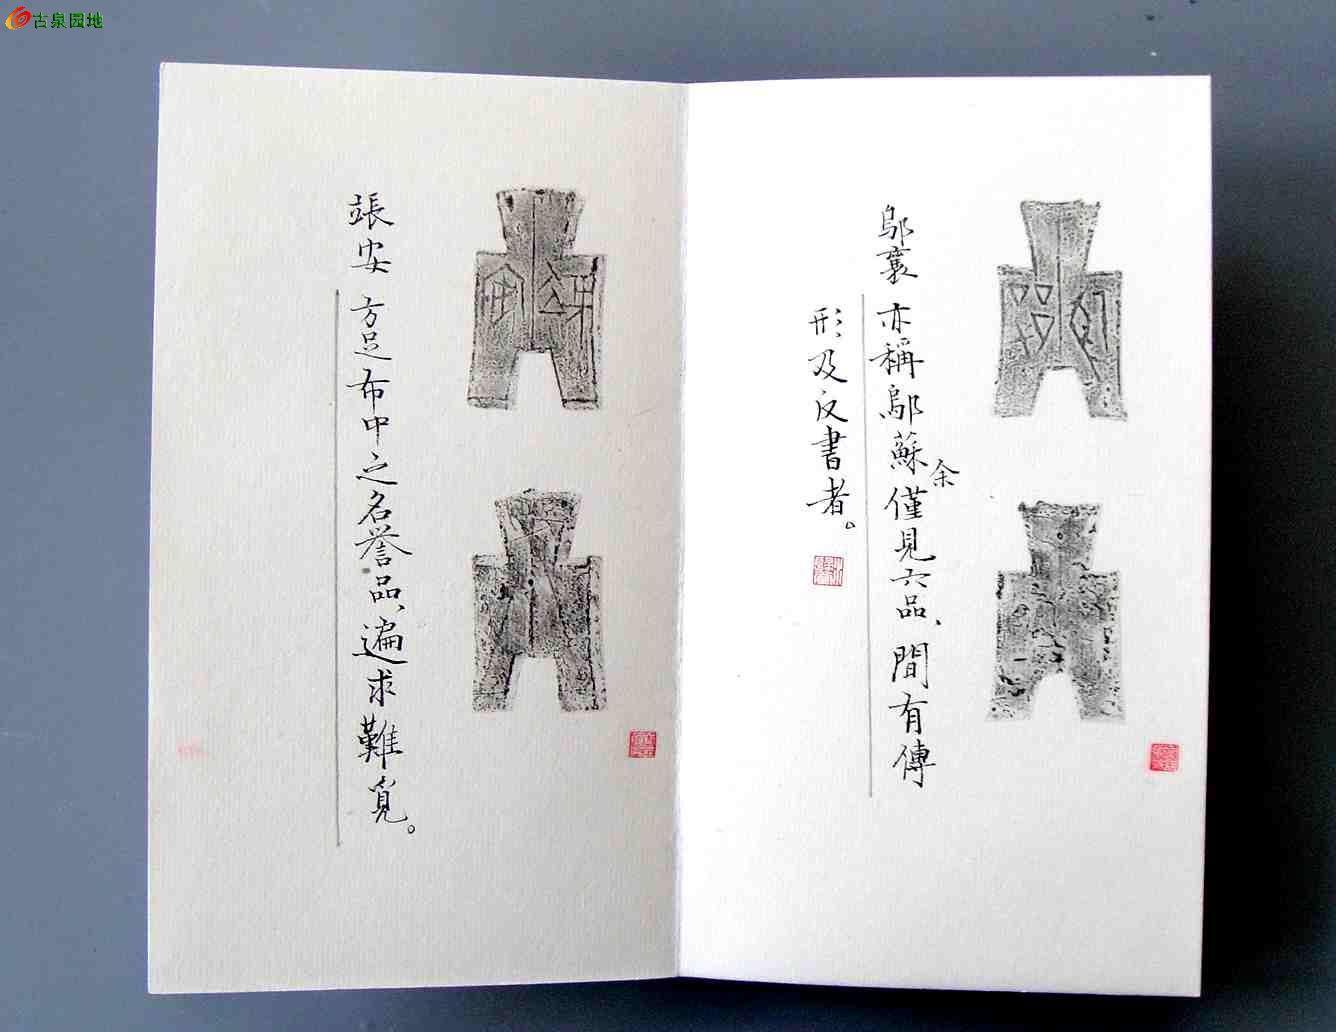 古泉园地
鄔
亦稱鄔蘇余僅見六品、間有傳
形及反書者。
安
方足布中之名譽品、遍求難覓。